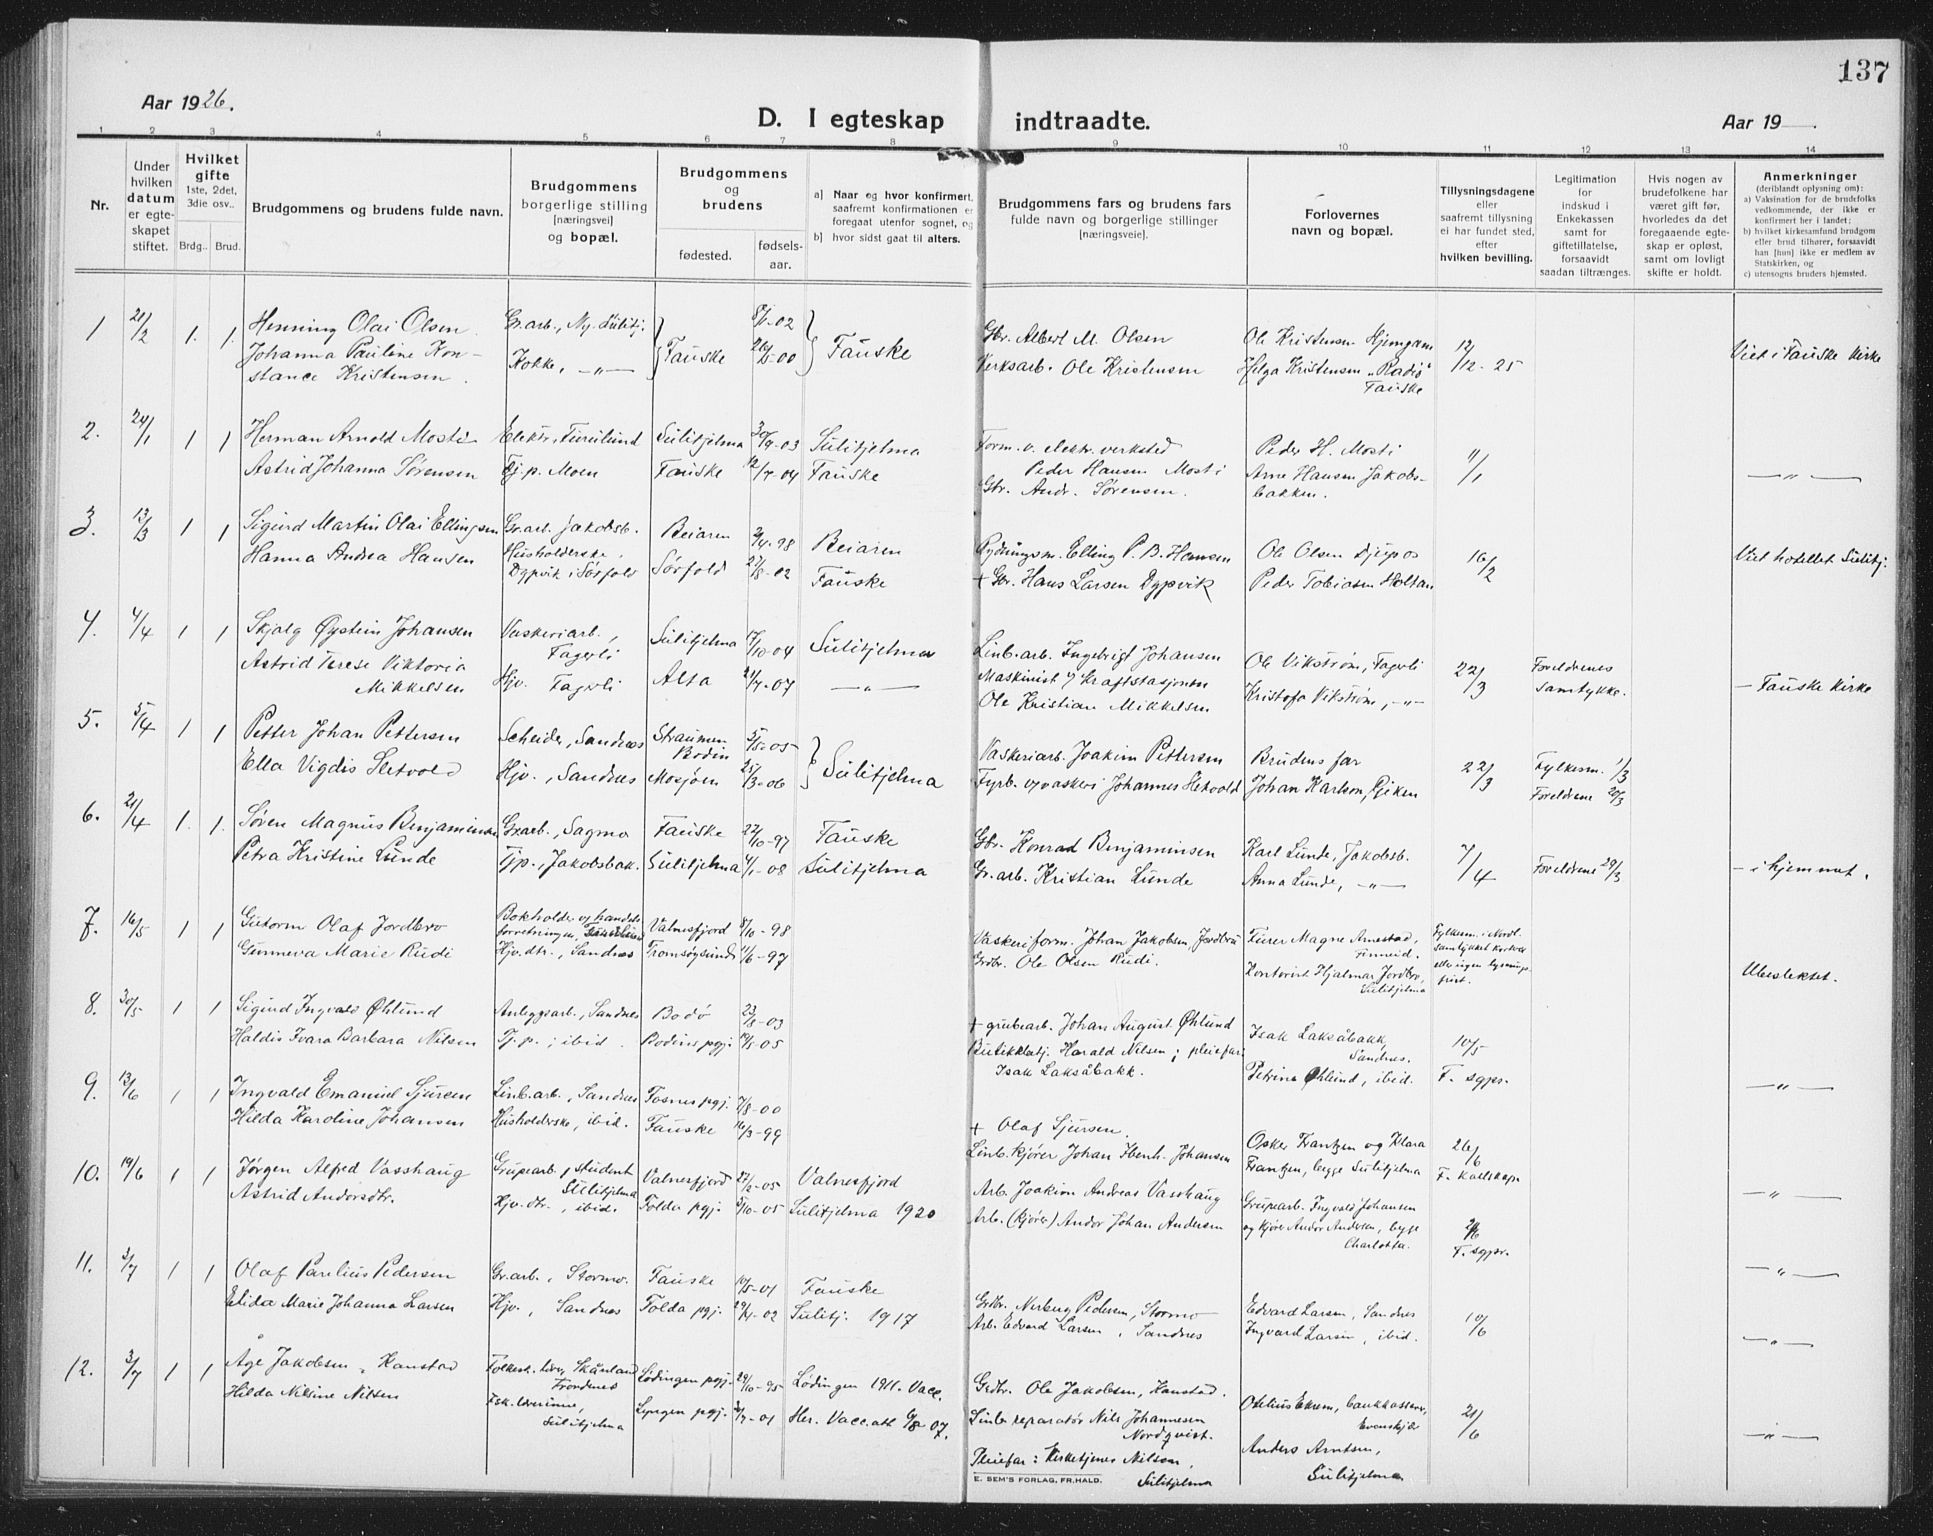 137
Aar 1926.
D. I egteskap indtraadte.
Aar 19
1 2 3 4 5 6 7 8 9 10 11 12 13 14
Nr.
Under hvilken datum er egteskapet stiftet.
Hvilket gifte
1ste, 2det, 3die osv..
Brdg.. Brud.
Brudgommens og brudens fulde navn.
Brudgommens borgerlige stilling [næringsvei] og bopæl.
Brudgommens og brudens
fødested. fødsels-aar.
a] Naar og hvor konfirmert, saafremt konfirmationen er foregaat utenfor sognet, og
b] hvor sidst gaat til alters.
Brudgommens fars og brudens fars fulde navn og borgerlige stillinger [næringsveie].
Forlovernes navn og bopæl.
Tillysningsdagene eller saafremt tillysning ei har fundet sted, efter hvilken bevilling.
Legitimation for indskud i Enkekassen samt for giftetillatelse, forsaavidt saadan tiltrænges.
Hvis nogen av brudefolkene har været gift før, hvorledes da det foregaaende egteskap er opløst, samt om lovligt skifte er holdt.
Anmerkninger
(deriblandt oplysning om):
a) Vaksination for de brudefolks vedkommende, der ikke er konfirmert her i landet;
b) hvilket kirkesamfund brudgom eller brud tilhører, forsaavidt han [hun] ikke er medlem av Statskirken, og
c) utensogns bruders hjemsted.
1 21/2 1. 1. Henning Olai Olsen Gr.arb., Ny. Sulitj. 8/1-02
Johanna Pauline Konstance Kristensen. Kokke, —"— Fauske 26/5-00 Fauske
Gbr. Albert M. Olsen Ole Kristensen Hjemgam 12/12-25
Verksarb. Ole Kristensen Helga Kristensen "Radio" Fauske
Viet i Fauske Kirke
2. 24/1 1 1 Herman Arnold Mosti Elektr., Furulund Sulitjelma 30/9-03 Sulitjelma
Astrid Johanna Sørensen Tj.p. Moen Fauske 12/7-04 Fauske
Form. v. elektr. verksted Peder H. Mosti 11/1
Peder Hansen Mosti Arne Hansen Jakobsbakken.
Gbr. Andr. Sørensen. —"—
3. 13/3 1 1 Sigurd Martin Olai Ellingsen Gr.arb. Jakobsb. Beiaren 2/4-98 Beiaren
Hanna Andrea Hansen Husholderske, Dypvik i Sørfold Sørfold 27/8-02 Fauske
Rydningsm. Elling P. B. Hansen Ole Olsen Djupos 16/2
+ Gbr. Hans Larsen Dypvik Peder Tobiasen Holtan
Viet hotellet Sulitj.
4. 4/4 1 1 Skjalg Øystein Johansen Vaskeriarb., Fagerli Sulitjelma 17/10-04 Sulitjelma
Astrid Terese Viktoria Mikkelsen Hjv. Fagerli Alta 21/7-07 —"—
Linb.arb. Ingebrigt Johansen Ole Vikstrøm, Fagerli 22/3 Foreldrenes samtykke.
Maskinist v/ kraftstasjonen Kristofa Vikstrøm, —"—
Ole Kristian Mikkelsen
— Fauske Kirke
5. 5/4 1 1 Petter Johan Pettersen Scheider, Sandnes Straumen Bodin 5/5-05
Ella Vigdis Hetvold Hjv., Sandnes Mosjøen 25/3-06 Sulitjelma
Vaskeriarb. Joakim Pettersen Brudens far 22/3 Fylkesm. 1/3
Fyrb. v/vaskeri Johannes Hetvold Johan Karlson, Giken Foreldrene 20/3
6. 21/4 1. 1. Søren Magnus Benjaminsen Gr.arb., Sagmo Fauske 22/10-97 Fauske
Petra Kristine Lunde Tjp., Jakobsbak. Sulitjelma 4/1-08 Sulitjelma
Gbr. Konrad Benjaminsen Karl Lunde, Jakobsb. 7/4 Foreldrene 29/3
Gr.arb. Kristian Lunde Anna Lunde, —"—
— i hjemmet.
7. 16/5 1 1 Gutorm Olaf Jordbro Bokholder og handelsforretningen, Valnesfjord 8/10-98
Gunneva Marie Rudi Hjv.dtr., Sandnes Tromsøysund 11/6-97
Vaskeriform. Johan Jakobsen, Jordbru Furer Magne Arnestad, Finneid. Fylkesm. i Nordl. samtykket
Grdbr. Ole Olsen Rudi. Kontorist Hjalmar Jordbro, Sulitjelma
Ubeslektet.
8. 30/5 1 1 Sigurd Ingvald Øhlund Anleggsarb., Sandnes Bodø 23/8-03
Haldis Ivara Barbara Nilsen Tj.p.; ibid. Bodins pgj. 19/5-05
+ grubearb. Johan August Øhlund Isak Laksåbakk, Sandnes. 10/5
Butikkbetj. Harald Nilsen; pleiefar: Isak Laksåbakk. Petrina Øhlund, ibid. F. sgpr.
—"—
9. 13/6 1 1 Ingvald Emanuel Sjursen Linb.arb., Sandnes Fosnes pgj. 7/8-00
Hilda Karoline Johansen Husholderske, ibid. Fauske 16/3-99
+ Olaf Sjursen. Oskar Frantzen og Klara Frantzen, begge Sulitjelma 26/6
Linb. kjører Johan Ibenh. Johansen F. kallskap.
—"—
10. 19/6 1 1 Jørgen Alfred Vasshaug Grubearb., student Sulitjelma Valnesfjord 27/2-05 Valnesfjord
Astrid Andorsdtr. Hjv.dtr., ibid. Folda pgj. 5/10-05 Sulitjelma 1920
Arb. Joakim Andreas Vasshaug Grubearb. Ingvald Johansen
Arb. (kjører) Andor Johan Andersen og kjører Andor Andersen, begge Charlotta. F. sgpr.
—"—
11. 3/7 1 1 Olaf Parelius Pedersen Gr.arb., Stormo. Fauske 10/5-01 Fauske
Elida Marie Johanna Larsen Hjv., Sandnes Folda pgj. 29/4-02 Sulitj. 1917
Grdbr. Nerberg Pedersen, Stormo Edvard Larsen, Sandnes 10/6
Arb. Edvard Larsen, Sandnes Ingvard Larsen, ibid.
—"—
12. 3/7 1 1 Åge Jakobsen Kanstad Folkesk.lærer, Skånland Lødingen pgj. 29/10-95 Lødingen 1911. Vacc.
Hilda Nilsine Nilsen Fsk.lærerinne, Sulitjelma Lyngen pgj. 2/7-01 Her. Vacc.att 6/8 07.
Grdbr. Ole Jakobsen, Kanstad. Otelius Ekrem, bankkasserer, Evenskjær 21/6
Linb. reparatør Nils Johannesen Nordqvist. Anders Arntsen, Sulitjelma
Pleiefar: Kirketjener Nilsen, Sulitjelma
—"—
E. SEM'S FORLAG, FR.HALD.